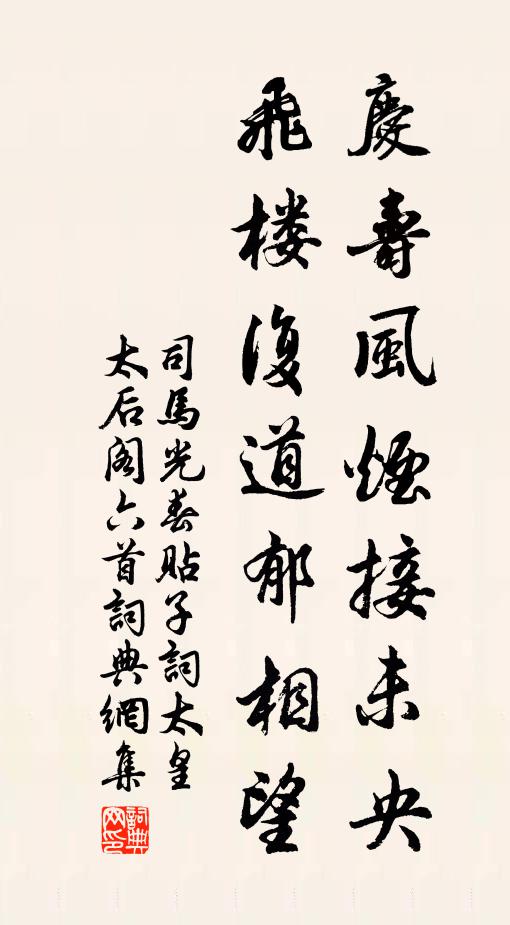 慶壽風煙接未央
飛楼復道郁相望
司馬光春貼子詞太皇
太后阁六首詞典網集
詞典網印